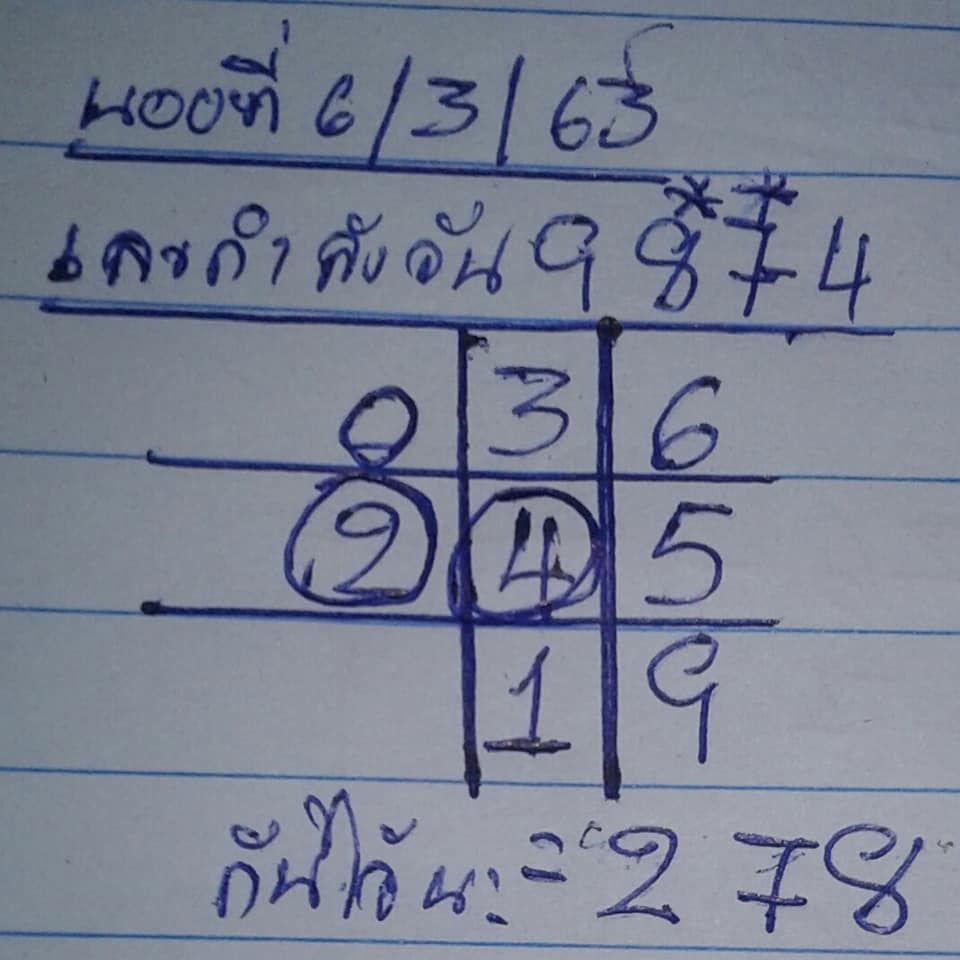 นอยที่ 6/3/63
* *
เลขกำลังวัน 9 8 7 4
0 3 6
2 4 5
1 9
กันไว้นะ = 2 7 8